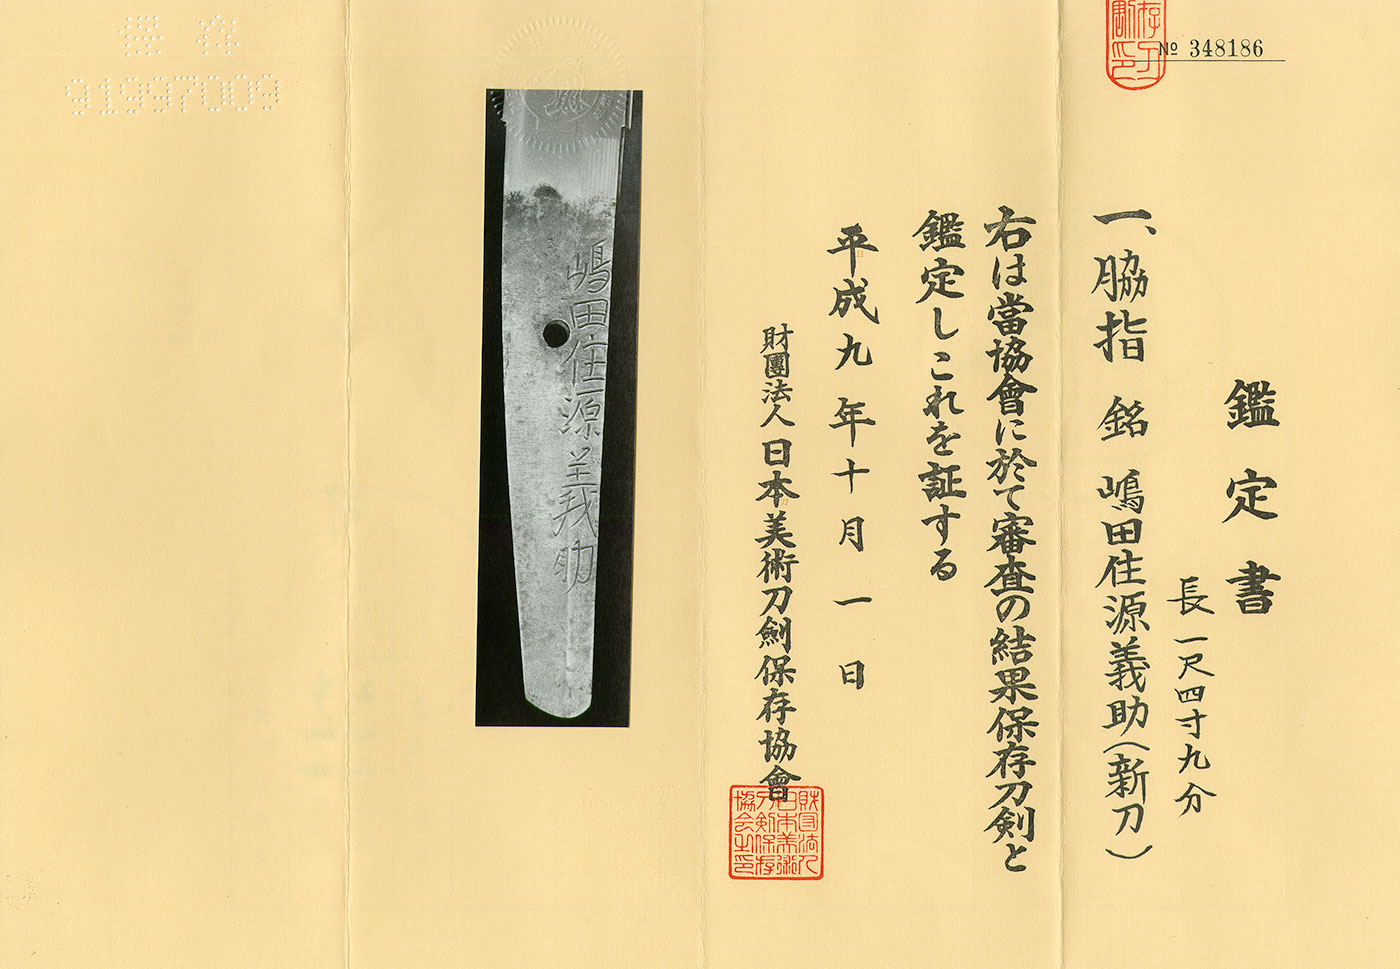 № 348186
鑑定書
長一尺四寸九分
一、脇指 銘 嶋田住源義助(新刀)
右は當協會に於て審査の結果保存刀剣と
鑑定しこれを証する
平成九年十月一日
財團法人日本美術刀劍保存協會
財団法人
日本美術
刀剣保存
協会之印
嶋田住源義助
保存
91997009